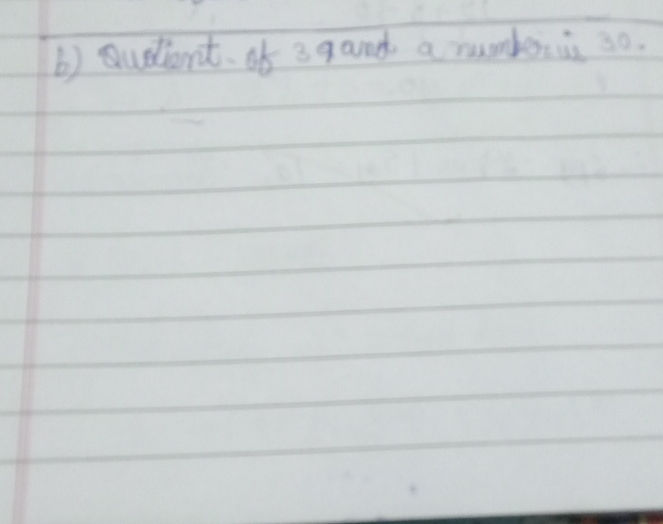 b) Quotient of 39 and a number is 30.